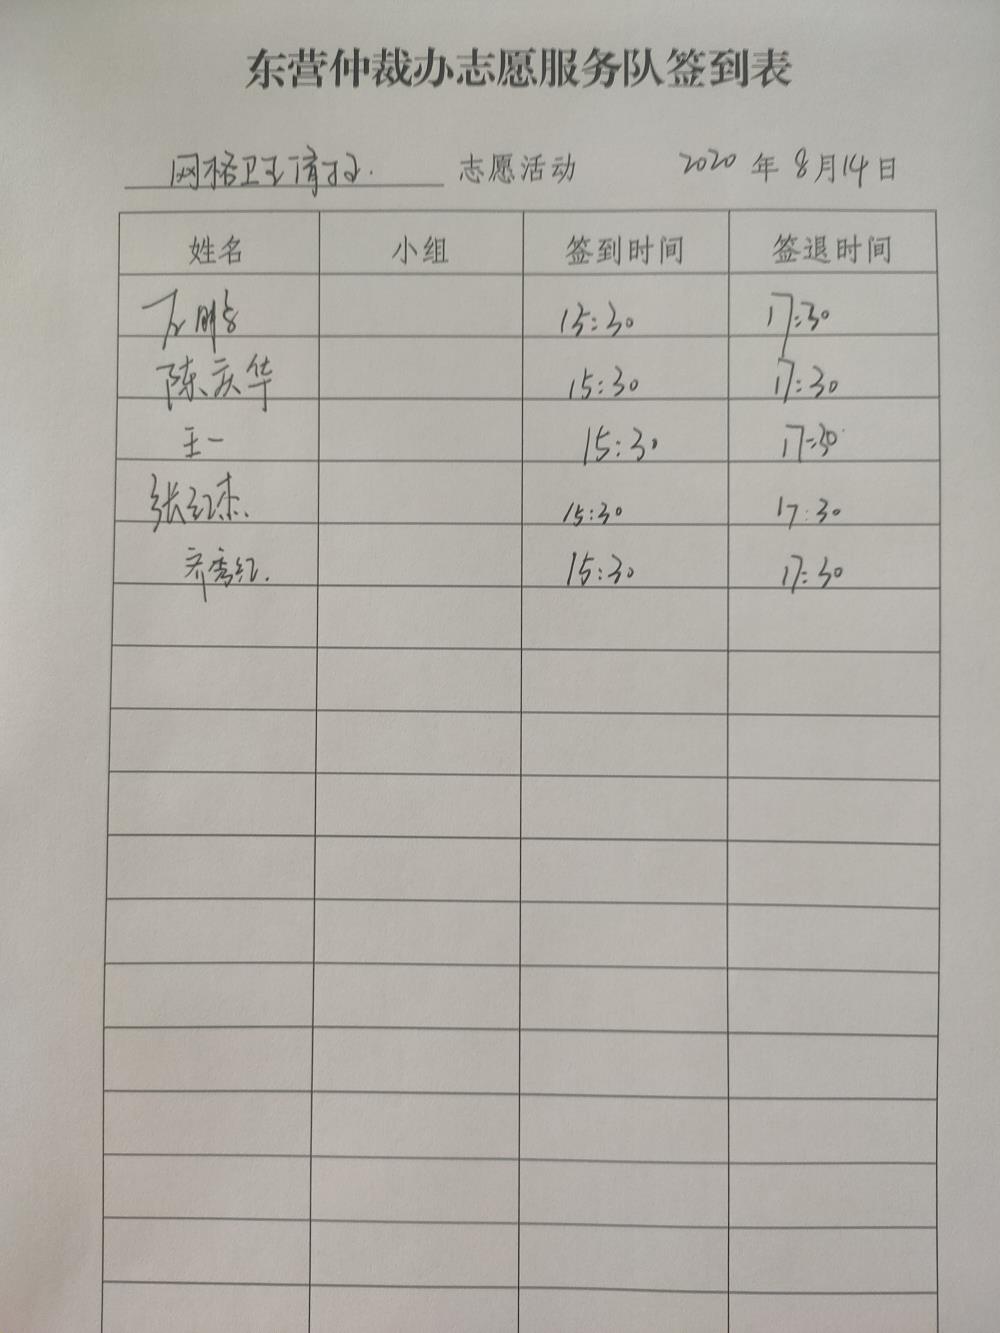 东营仲裁办志愿服务队签到表
网格卫生清扫. 志愿活动 2020 年 8月14日
姓名 小组 签到时间 签退时间
鹏 15:30 17:30
陈庆华 15:30 17:30
王一 15:30 17:30
张红杰. 15:30 17:30
齐秀红. 15:30 17:30